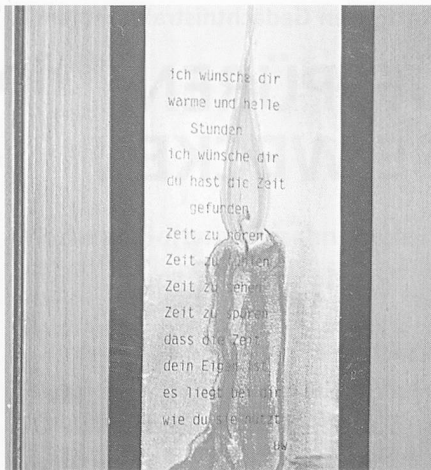 ich wünsche dir
warme und helle
Stunden
ich wünsche dir
du hast die Zeit
gefunden
Zeit zu hören
Zeit zu fühlen
Zeit zu sehen
Zeit zu spüren
dass die Zeit
dein Eigen ist
es liegt bei dir
wie du sie nützt